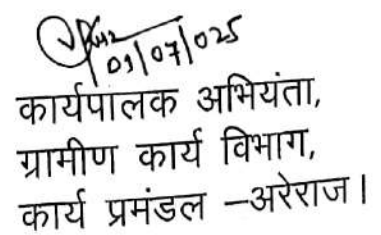 09/07/025
कार्यपालक अभियंता,
ग्रामीण कार्य विभाग,
कार्य प्रमंडल –अरेराज।